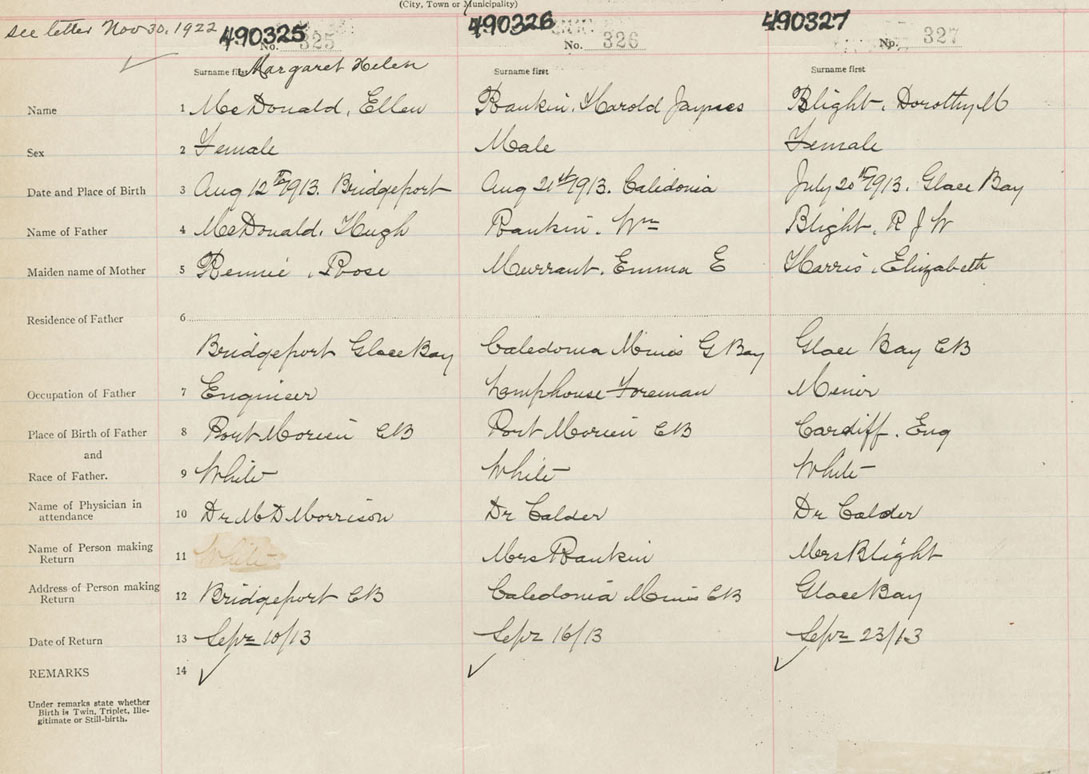 (City, Town or Municipality)
see letter Nov 30, 1922 490325 490326 490327
No. 325 No. 326 No. 327
Surname first Margaret Helen Surname first Surname first
Name 1 McDonald, Ellen Rankin, Harold Blight, Dorothy M
Sex 2 Female Male Female
Date and Place of Birth 3 Aug 12th 1913. Bridgeport Aug 21st 1913. Caledonia July 20th 1913. Glace Bay
Name of Father 4 McDonald, Hugh Rankin, Wm Blight, R J W
Maiden name of Mother 5 Rennie, Rose Murrant, Emma E Harris, Elizabeth
Residence of Father 6
Bridgeport Glace Bay Caledonia Mines G Bay Glace Bay CB
Occupation of Father 7 Engineer Lamphouse Foreman Miner
Place of Birth of Father 8 Port Morien CB Port Morien CB Cardiff. Eng
and
Race of Father. 9 White White White
Name of Physician in attendance 10 Dr M D Morrison Dr Calder Dr Calder
Name of Person making Return 11 White Mrs Rankin Mrs Blight
Address of Person making Return 12 Bridgeport CB Caledonia Mines CB Glace Bay
Date of Return 13 Sept 10/13 Sept 16/13 Sept 23/13
REMARKS 14
Under remarks state whether
Birth is Twin, Triplet, Ille-
gitimate or Still-birth.